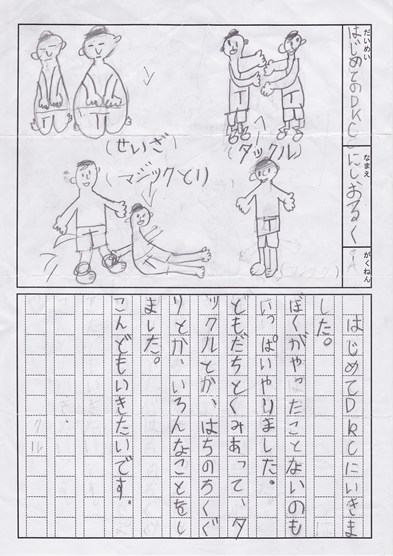 だいめい
はじめてのDKC
なまえ
にしおるく
がくねん
(タックル)
(せいざ)
(マジックとり)
はじめてDKCにいきま
した。
ぼくがやったことないのも
いっぱいやりました。
ともだちとくみあって、タ
ックルとか、はちのちくぐ
りとか、いろんなことをし
ました。
こんどもいきたいです。